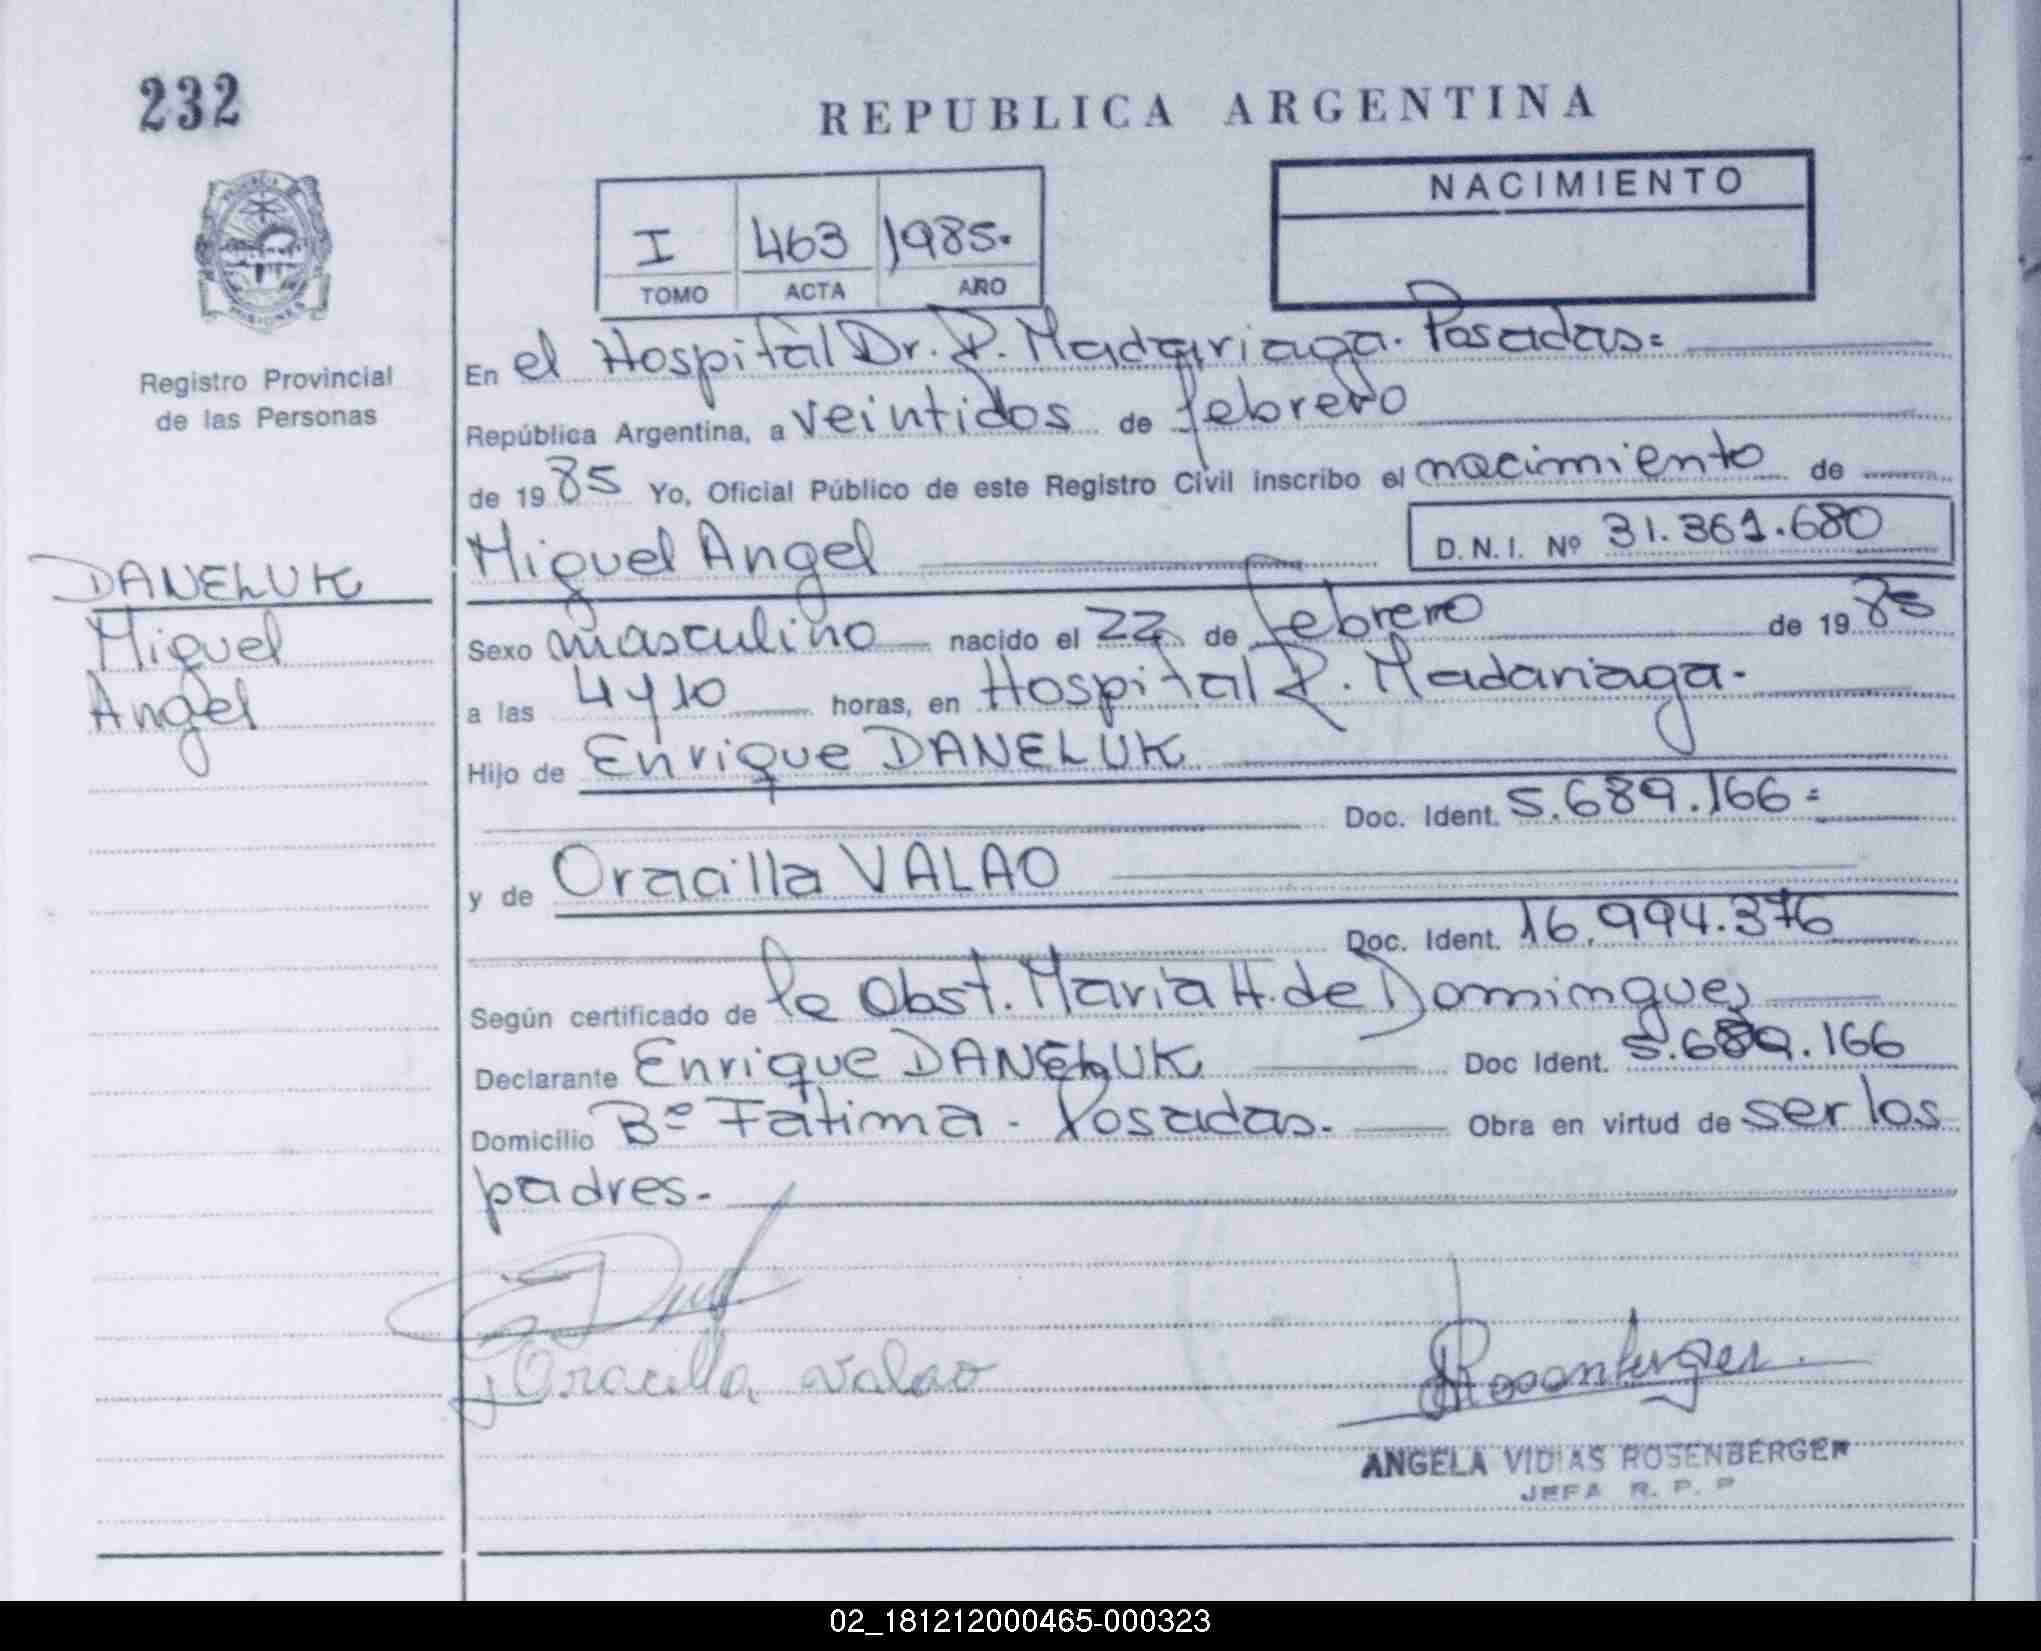 232
REPUBLICA ARGENTINA
NACIMIENTO
I 463 1985.
TOMO ACTA AÑO
Registro Provincial
de las Personas
DANELUK
Miguel
Angel
En el Hospital Dr. R. Madariaga. Posadas=
República Argentina, a veintidos de febrero
de 1985 Yo, Oficial Público de este Registro Civil inscribo el nacimiento de
Miguel Angel D.N.I. Nº 31.361.680
Sexo masculino nacido el 22 de febrero de 1985
a las 4 y 10 horas, en Hospital R. Madariaga.
Hijo de Enrique DANELUK
Doc. Ident. 5.689.166=
y de Oracilla VALAO
Doc. Ident. 16.994.376
Según certificado de la Obst. Maria H. de Domingues
Declarante Enrique DANELUK Doc Ident. 5.689.166
Domicilio Bº Fatima - Posadas. Obra en virtud de ser los
padres.
Oracilla Valao
Rosenberger
ANGELA VIDIAS ROSENBERGER
JEFA R. P. P
02_181212000465-000323